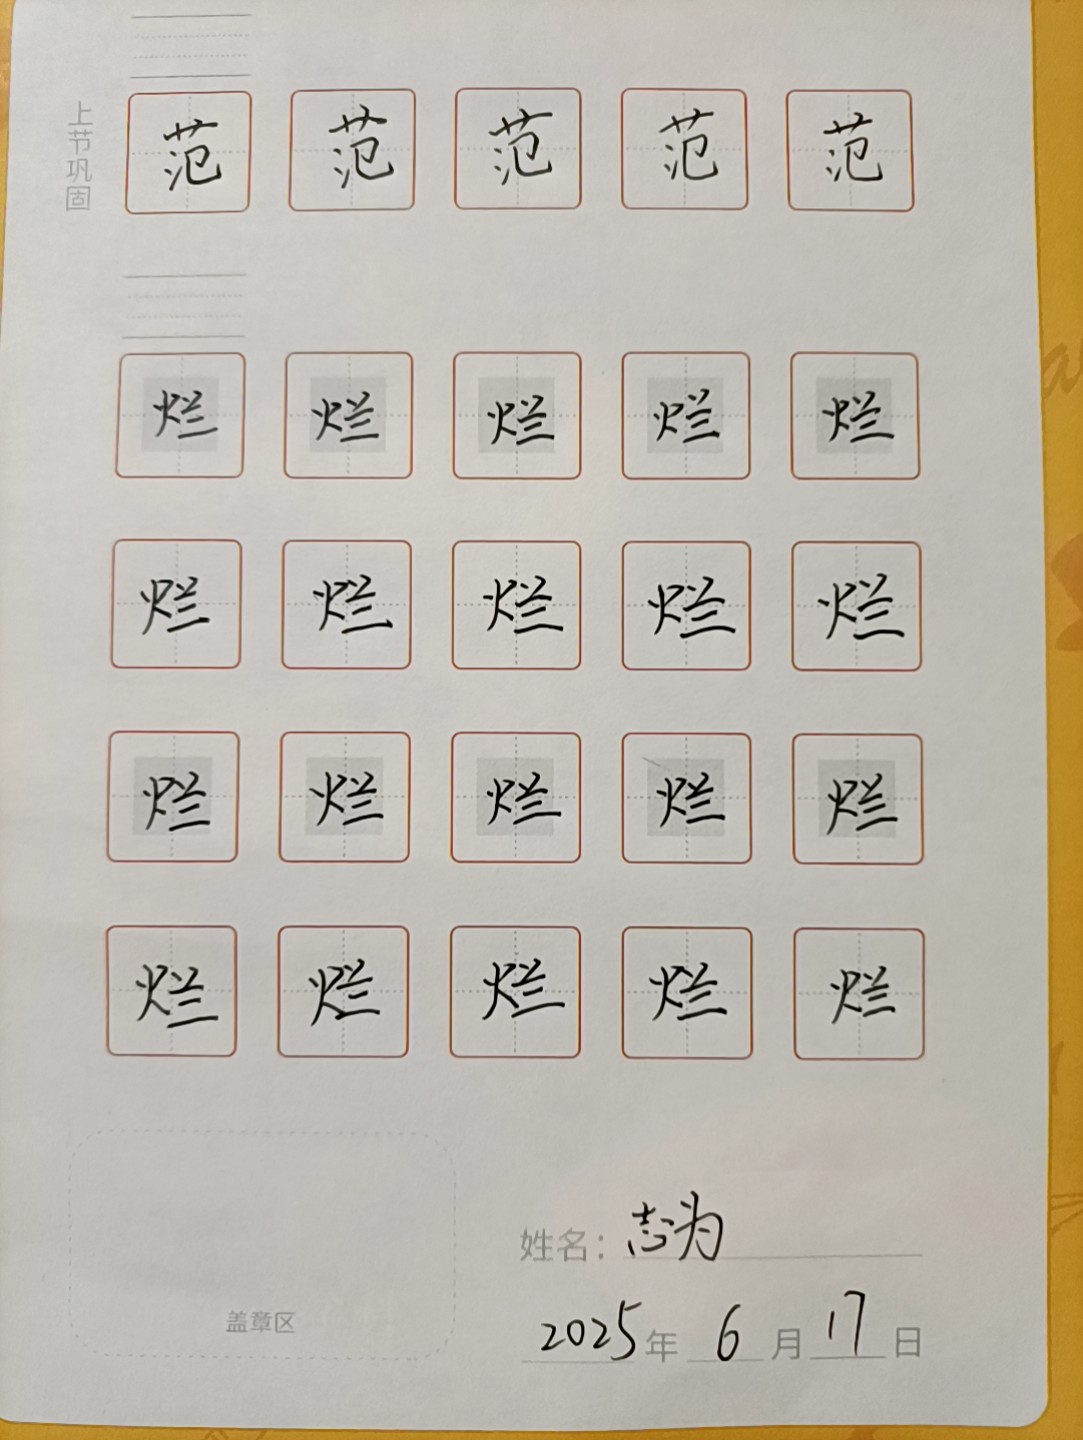 上节巩固
范 范 范 范 范
烂 烂 烂 烂 烂
烂 烂 烂 烂 烂
烂 烂 烂 烂 烂
烂 烂 烂 烂 烂
姓名：志为
盖章区
2025年 6月 17日